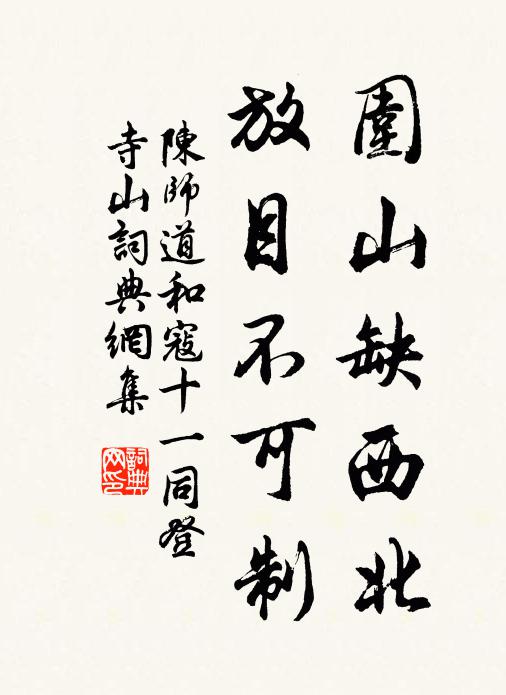 圍山缺西北
放目不可制
陳師道和寇十一同登
寺山詞典網集
詞典網印